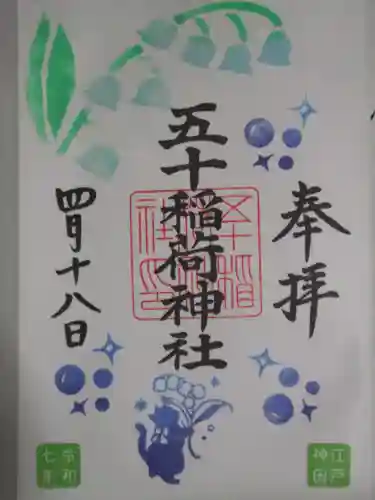 奉拝
五十稲荷神社
四月十八日
江戸
神田
令和
七年